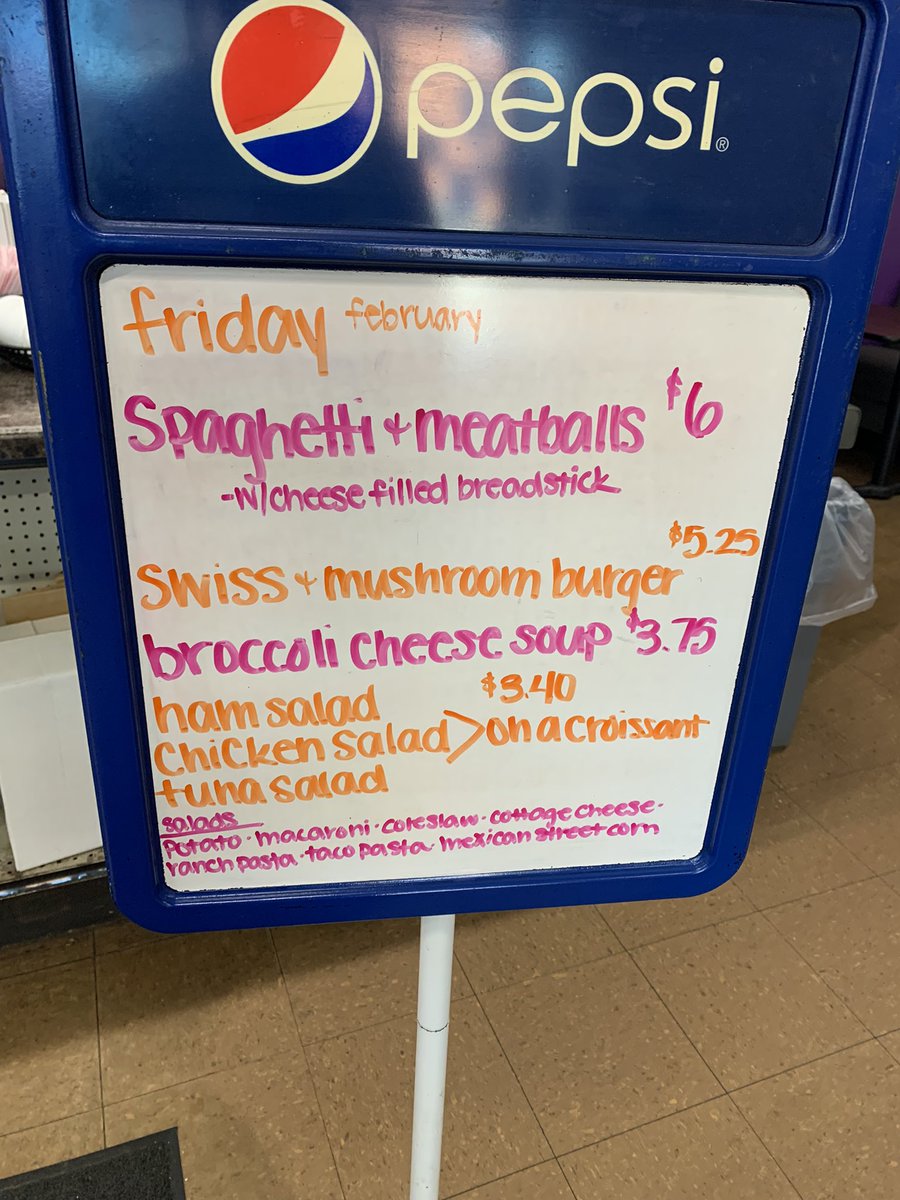 pepsi®
friday february
Spaghetti + meatballs $6
-w/cheese filled breadstick
$5.25
Swiss + mushroom burger
broccoli cheese soup $3.75
ham salad $3.40
chicken salad > on a croissant
tuna salad
salads
potato · macaroni · coleslaw · cottage cheese ·
ranch pasta · taco pasta · mexican street corn